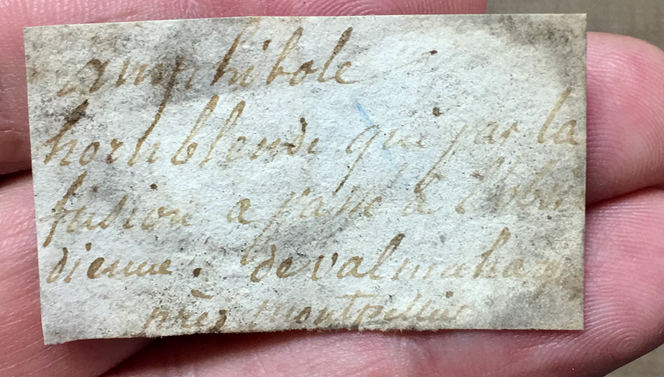 amphibole
hornblende qui par la
fusion a passé à l'obsi
dienne. de valmahargues
près montpellier